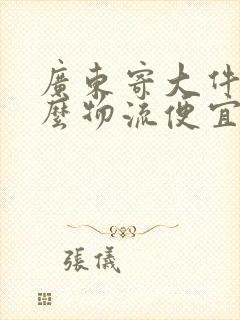 廣東寄大件
麼物流便宜
張儀